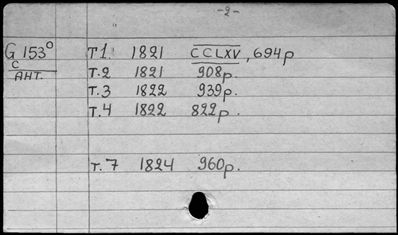 -2-
G 153° T1. 1821 CCLXV, 694p
C
АНТ. Т.2 1821 908p.
Т.3 1822 939p.
Т.4 1822 822p.
Т.7 1824 960p.